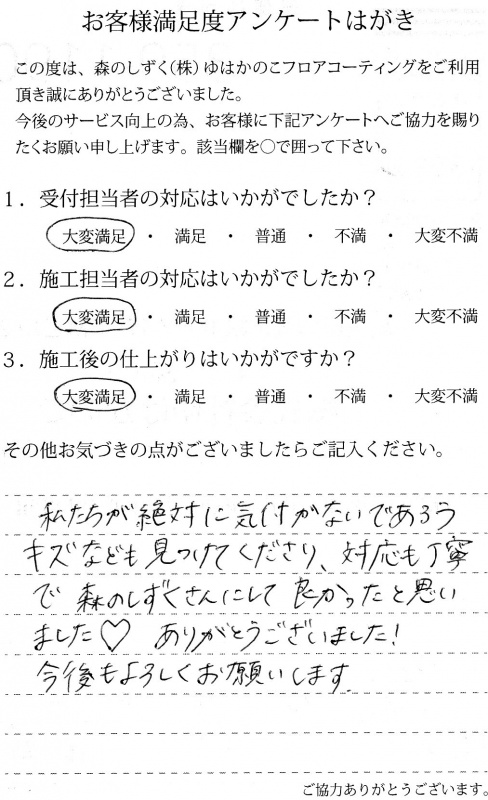 お客様満足度アンケートはがき
この度は、森のしずく(株)ゆはかのこフロアコーティングをご利用
頂き誠にありがとうございました。
今後のサービス向上の為、お客様に下記アンケートへご協力を賜り
たくお願い申し上げます。該当欄を○で囲って下さい。
1．受付担当者の対応はいかがでしたか？
大変満足 ・ 満足 ・ 普通 ・ 不満 ・ 大変不満
2．施工担当者の対応はいかがでしたか？
大変満足 ・ 満足 ・ 普通 ・ 不満 ・ 大変不満
3．施工後の仕上がりはいかがですか？
大変満足 ・ 満足 ・ 普通 ・ 不満 ・ 大変不満
その他お気づきの点がございましたらご記入ください。
私たちが絶対に気付かないであろう
キズなども見つけてくださり、対応も丁寧
で 森のしずくさんにして 良かったと思い
ました♡ ありがとうございました!
今後もよろしくお願いします.
ご協力ありがとうございます。